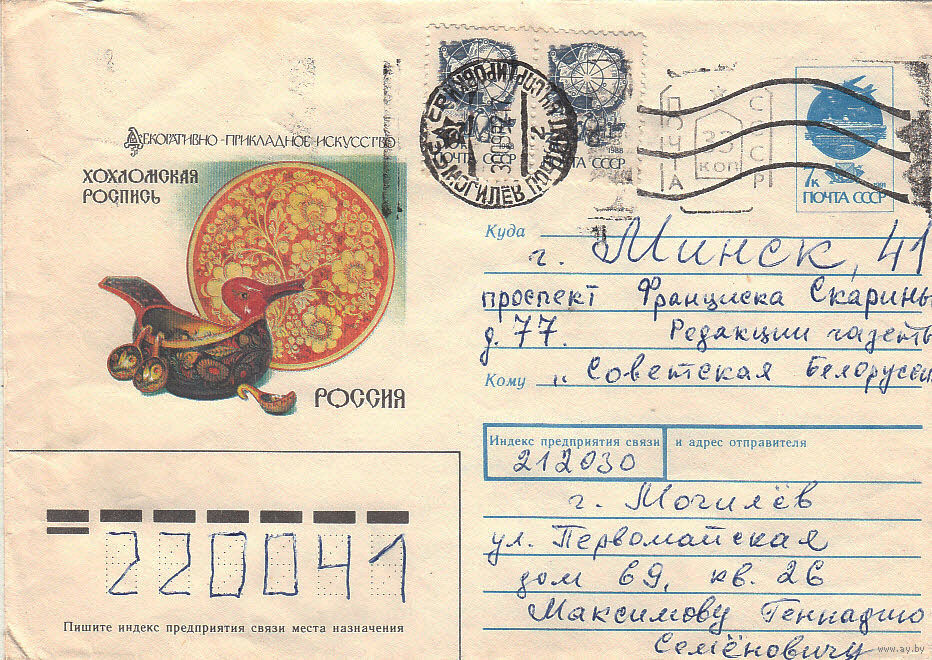 Декоративно-прикладное искусство
ХОХЛОМСКАЯ
РОСПИСЬ
РОССИЯ
ПОЧТА СССР
1988
ПОЧТА СССР
МОГИЛЕВ
ПОЧТА
СССР
КОП
7к
ПОЧТА СССР
Куда
г. Минск, 41
проспект Франциска Скарины
д. 77. Редакции газеты
Кому „Советская Белоруссия
Индекс предприятия связи и адрес отправителя
212030
г. Могилёв
ул. Первомайская
дом 69, кв. 26
Максимову Геннадию
Семёновичу
220041
Пишите индекс предприятия связи места назначения
www.ay.by